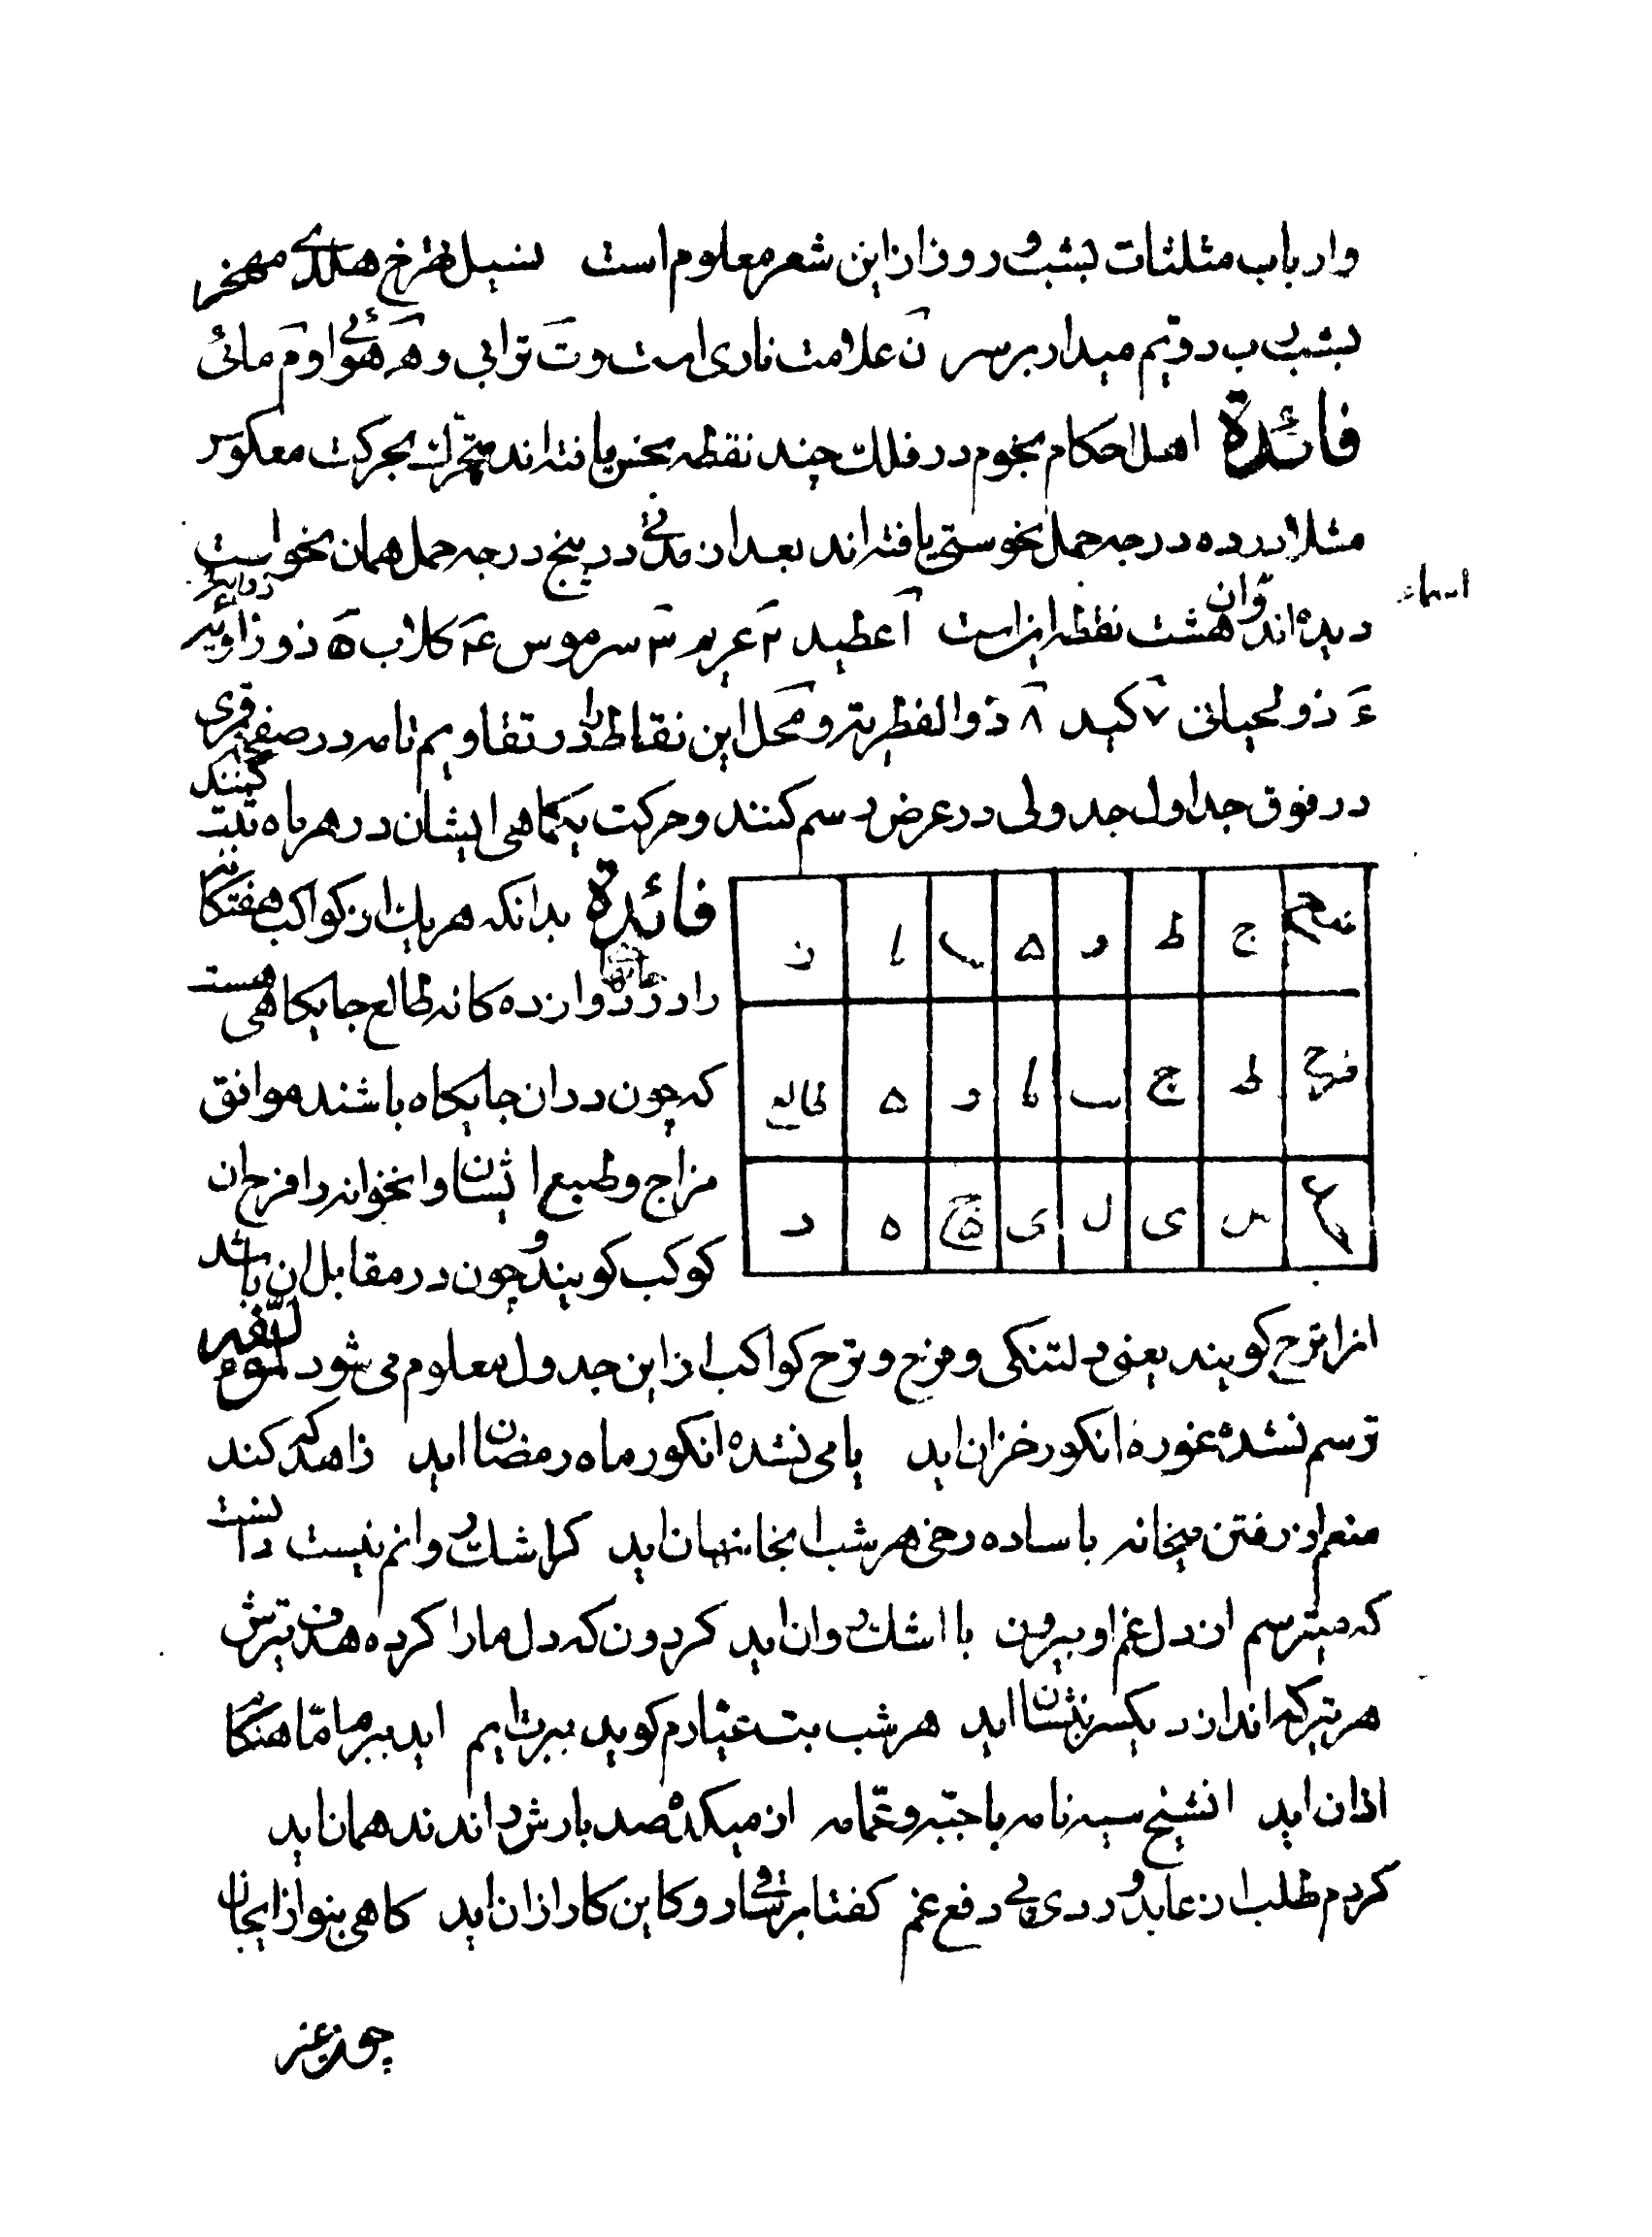 وارباب مثلثات بشب و روز ازاین شعر معلوم است
بشب ب دویم میدار برسر نَ علامت ناری است و تَ ترابی و هَ هوائی و مَ مائی
فائدة اهل احکام نجوم در فلک چند نقطه نحس یافته اند متحرک بحرکت معکوس
مثلا در ده درجه حمل نحوستی یافته اند بعد از مدتی در پنج درجه حمل همان نحوست
اسماء
دیده اند و ان هشت نقطه اینست ۱ عطید ۲ غریم ۳ سرموس ۴ کلاب ۵ ذو زوابه
۶ ذو لحیانی ۷ کید ۸ ذوالفطریته و محل این نقاط را در تقاویم تامه در صفحه قمری
در فوق جداول جدولی در عرض رسم کنند و حرکت یکماهی ایشان در هر ماه ثبت کنند
ج ط و ه ب ا ز
فرح ط ج ب یا و ه طالع
فائدة بدانکه هر یک از کواکب هفتگانه
را در دوازده کانه طالع جایکاهی هست
که چون در ان جایکاه باشند موافق
مزاج و طبع ایشان و انخوانه را فرح ان
کوکب کویند و چون در مقابل ان باشد
انرا ترح کویند یعنی دلتنکی و فرح و ترح کواکب از این جدول معلوم می شود
ترسم نشده غوره انکور خزان اید یا می نشده انکور ماه رمضان اید زاهد که کند
منعم از رفتن میخانه با ساده رخی هر شب انجا نهان اید کر اشک روانم نیست دانست
که میترسم از دل غم او بیرون با اشک روان اید کردون که دل ما را کرده هدف تیرش
هر تیر که اندازد یکسر بنشان اید هر شب بت عیارم کوید ببرت ایم اید ببرم اما هنکام
اذان اید انشیخ سیه نامه با جبه و عمامه از میکده صد بارش رانند همان اید
کردم طلب از عابد و ردی پی دفع غم کفتا بر ساقی رو کاین کار از ان اید کاهی بنواز ایجان